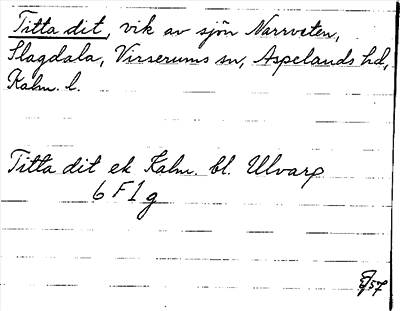 Titta dit, vik av sjön Narrveten,
Slagdala, Virserums sn, Aspelands hd,
Kalm. l.
Titta dit ek Kalm. bl. Ulvarp
6 F 1 g
/57